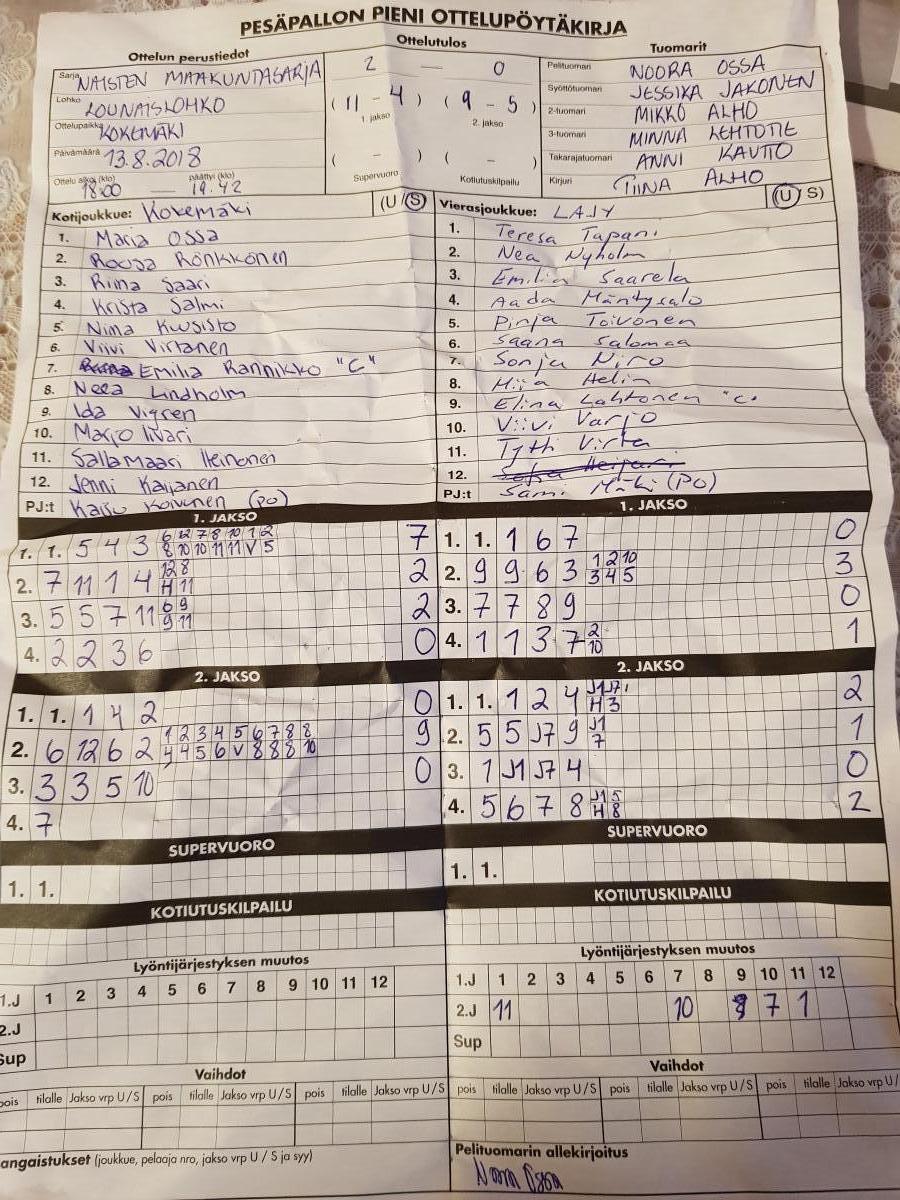 PESÄPALLON PIENI OTTELUPÖYTÄKIRJA
Ottelun perustiedot
Ottelutulos
Tuomarit
Sarja NAISTEN MAAKUNTASARJA
Lohko LOUNAISLOHKO
Ottelupaikka KOKEMÄKI
Päivämäärä 13.8.2018
Ottelu alkoi (klo) päättyi (klo)
18:00 — 19.42
2 — 0
( 11 - 4 ) ( 9 - 5 )
1. jakso 2. jakso
( - ) ( - )
Supervuoro Kotiutuskilpailu
Pelituomari NOORA OSSA
Syöttötuomari JESSIKA JAKONEN
2-tuomari MIKKO ALHO
3-tuomari MINNA LEHTOTIE
Takarajatuomari ANNI KAUTTO
Kirjuri TIINA ALHO
Kotijoukkue: Kokemäki (U/S)
1. Maria Ossa
2. Roosa Rönkkönen
3. Riina Saari
4. Krista Salmi
5. Niina Kuusisto
6. Viivi Virtanen
7. Emilia Rannikko "C"
8. Neea Lindholm
9. Ida Vigren
10. Marjo Iivari
11. SallaMaari Heinonen
12. Jenni Kaijanen
PJ:t Kaisu Koivunen (PO)
Vierasjoukkue: LAJY (U/S)
1. Teresa Tapani
2. Nea Nyholm
3. Emilia Saarela
4. Aada Mäntysalo
5. Pinja Toivonen
6. Saana Salomaa
7. Sonja Niro
8. Miia Helin
9. Elina Lahtonen "C"
10. Viivi Varjo
11. Tytti Virta
12.
PJ:t Sami Mäki (PO)
1. JAKSO
1. 1. 5 4 3 6 12 7 8 10 1 2 7
8 10 10 11 11 V 5
2. 7 11 1 4 12 8 2
H 11
3. 5 5 7 11 6 9 2
9 11
4. 2 2 3 6 0
2. JAKSO
1. 1. 1 4 2 0
2. 6 12 6 2 1 2 3 4 5 6 7 8 8 9
4 4 5 6 V 8 8 8 10
3. 3 3 5 10 0
4. 7
SUPERVUORO
1. 1.
KOTIUTUSKILPAILU
Lyöntijärjestyksen muutos
1.J 1 2 3 4 5 6 7 8 9 10 11 12
2.J
Sup
Vaihdot
pois tilalle Jakso vrp U/S pois tilalle Jakso vrp U/S pois tilalle Jakso vrp U/S
angaistukset (joukkue, pelaaja nro, jakso vrp U / S ja syy)
1. JAKSO
1. 1. 1 6 7 0
2. 9 9 6 3 1 2 10 3
3 4 5
3. 7 7 8 9 0
4. 1 1 3 7 2 1
10
2. JAKSO
1. 1. 1 2 4 J1 J7 2
H 3
2. 5 5 J7 9 J1 1
7
3. 1 J1 J7 4 0
4. 5 6 7 8 J1 5 2
H 8
SUPERVUORO
1. 1.
KOTIUTUSKILPAILU
Lyöntijärjestyksen muutos
1.J 1 2 3 4 5 6 7 8 9 10 11 12
2.J 11 10 7 1
Sup
Vaihdot
pois tilalle Jakso vrp U/S pois tilalle Jakso vrp U/S pois tilalle Jakso vrp U/
Pelituomarin allekirjoitus
Noora Ossa